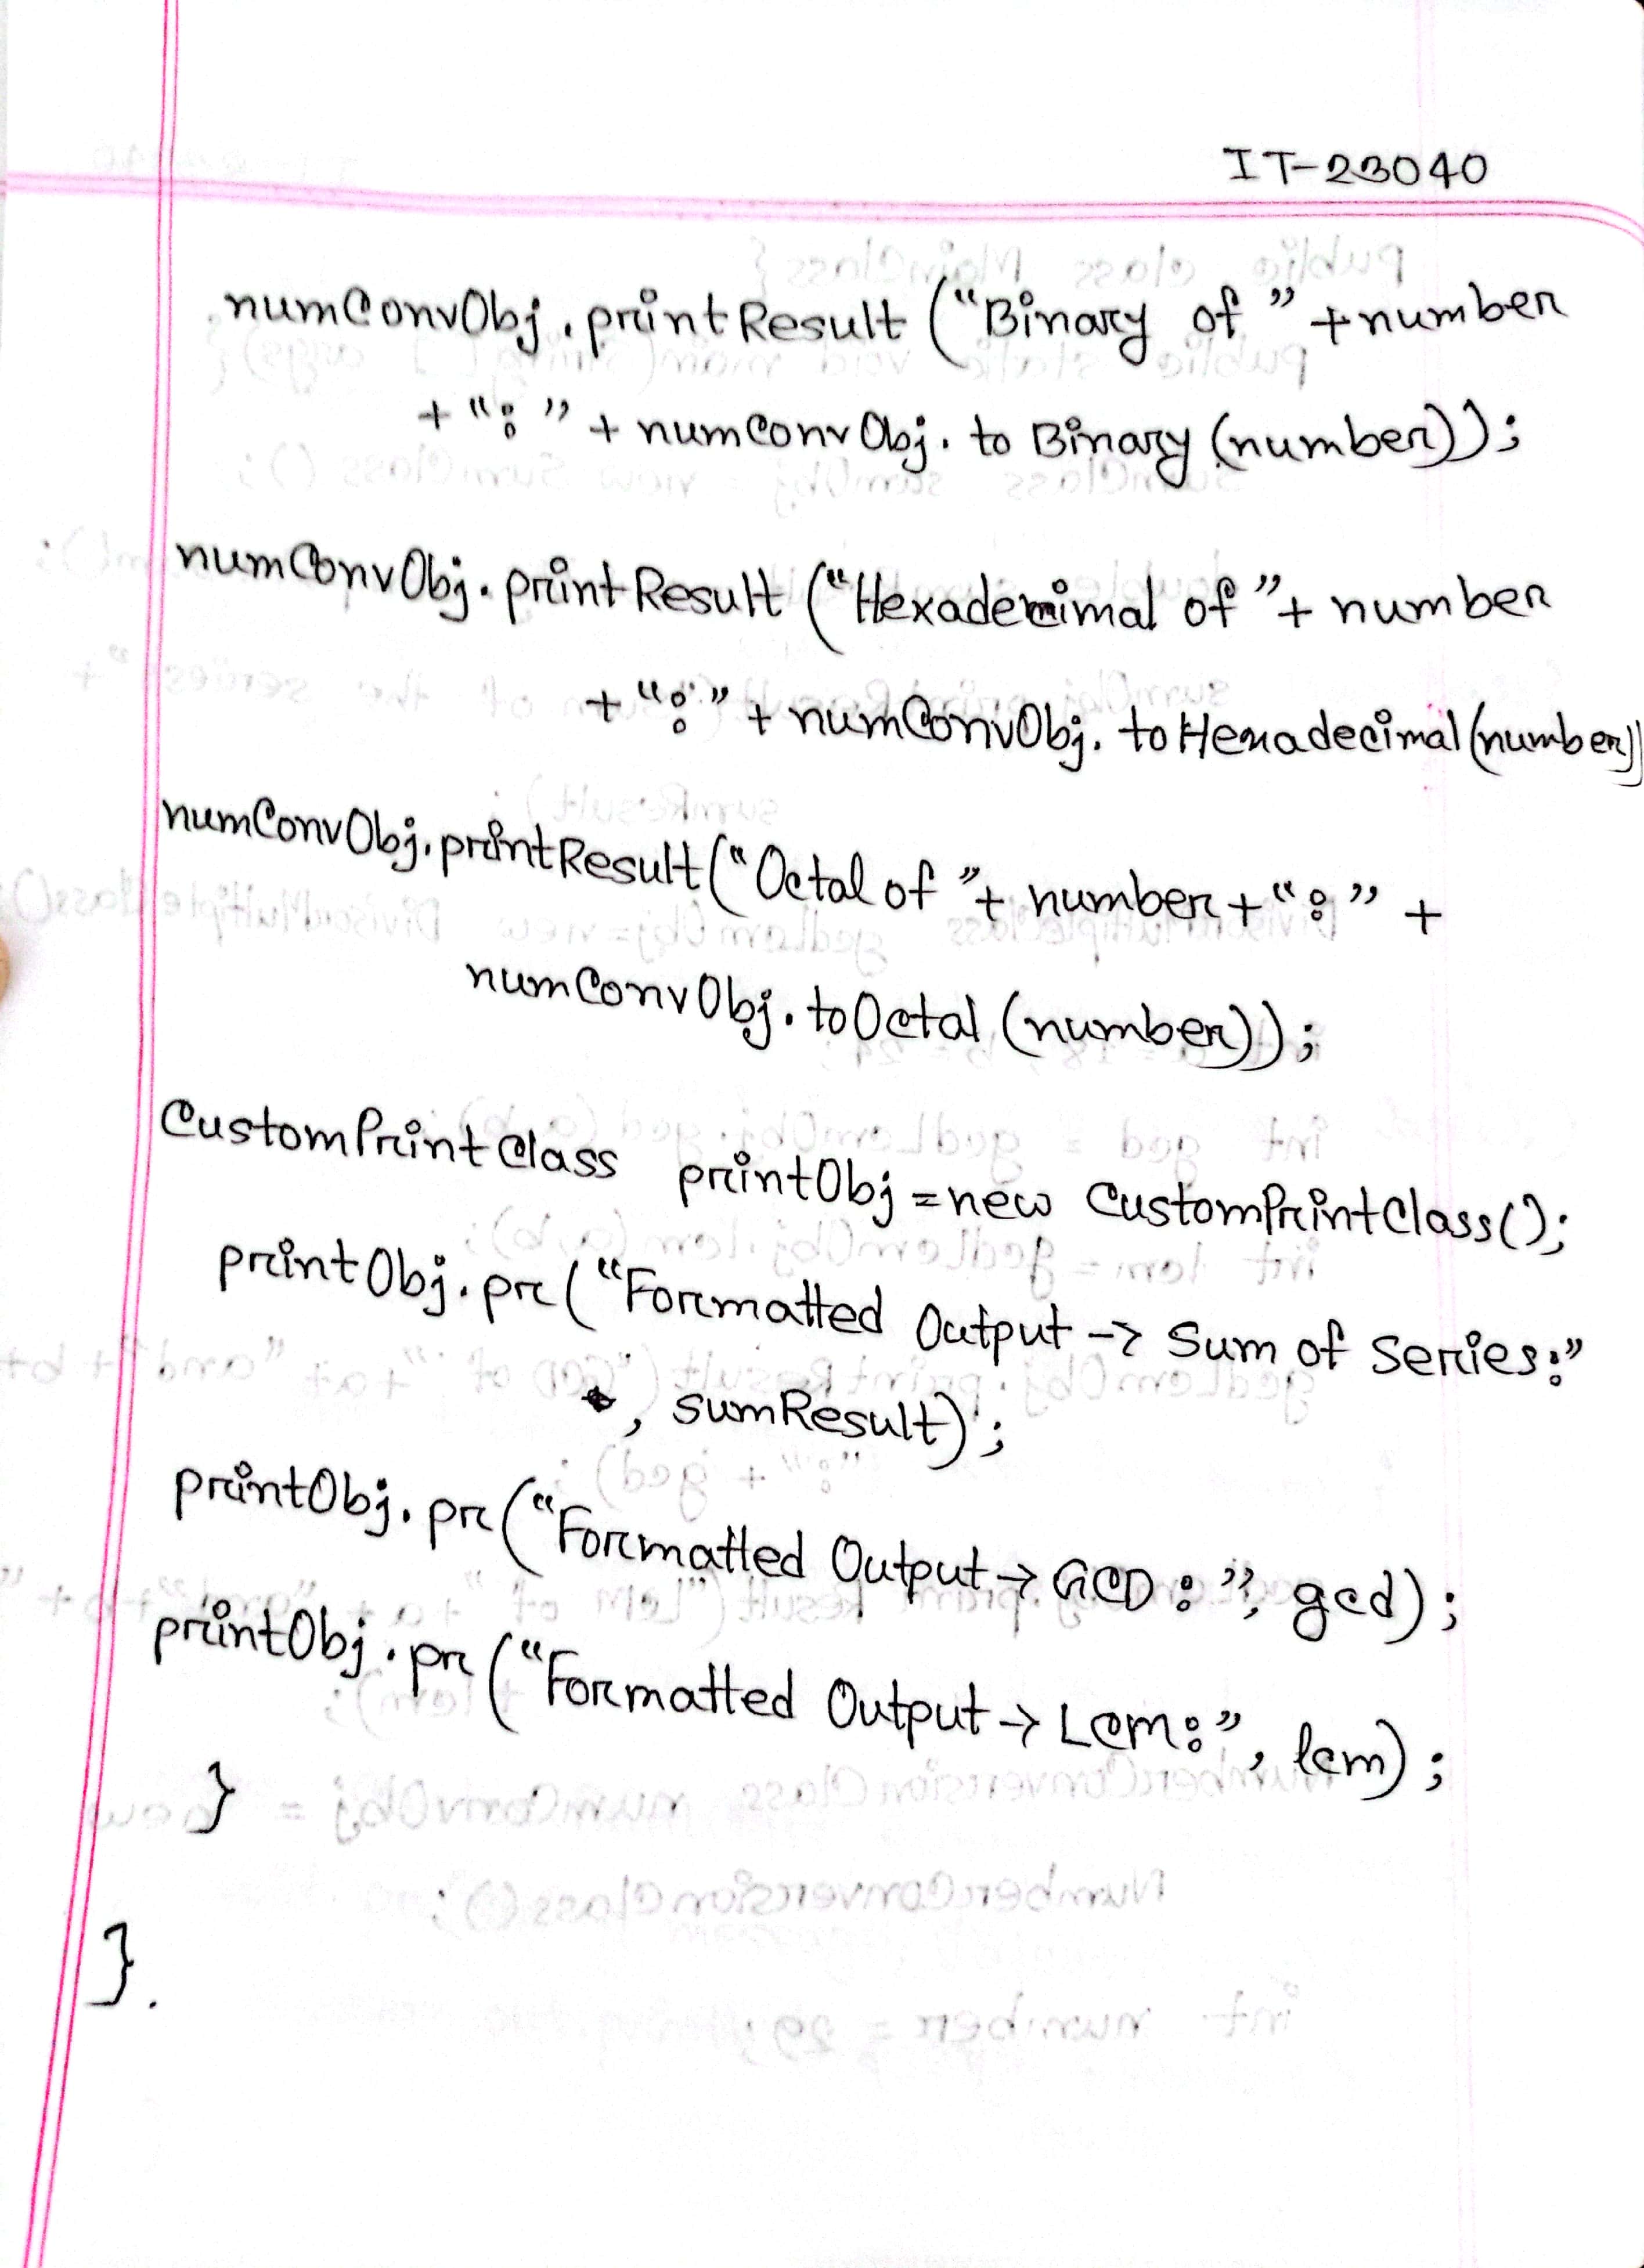 IT-23040
numConvObj.printResult ("Binary of " + number
+ ": " + numConvObj.toBinary (number));
numConvObj.printResult ("Hexadecimal of " + number
+ ": " + numConvObj.toHexadecimal (number))
numConvObj.printResult ("Octal of " + number + ": " +
numConvObj.toOctal (number));
CustomPrintClass printObj = new CustomPrintClass();
printObj.pr ("Formatted Output -> Sum of Series:"
, sumResult);
printObj.pr ("Formatted Output → GCD : ", gcd);
printObj.pr ("Formatted Output → Lcm: ", lcm);
}
}.